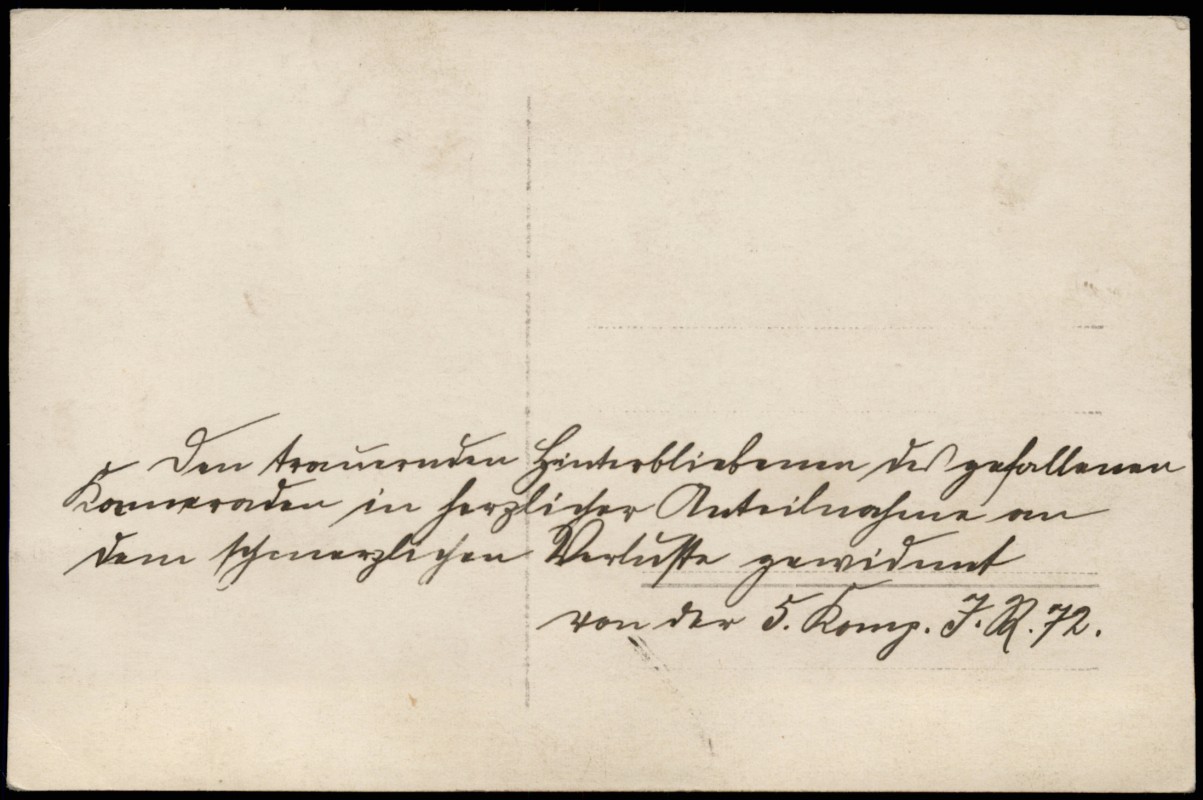 Den trauernden Hinterbliebenen des gefallenen
Kameraden in herzlicher Anteilnahme an
dem schmerzlichen Verluste gewidmet
von der 5. Komp. J. R. 72.